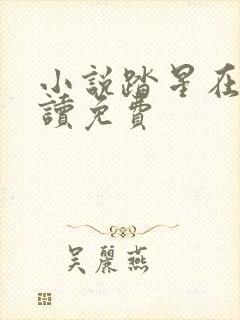 小說踏星在
讀免費
吳麗燕